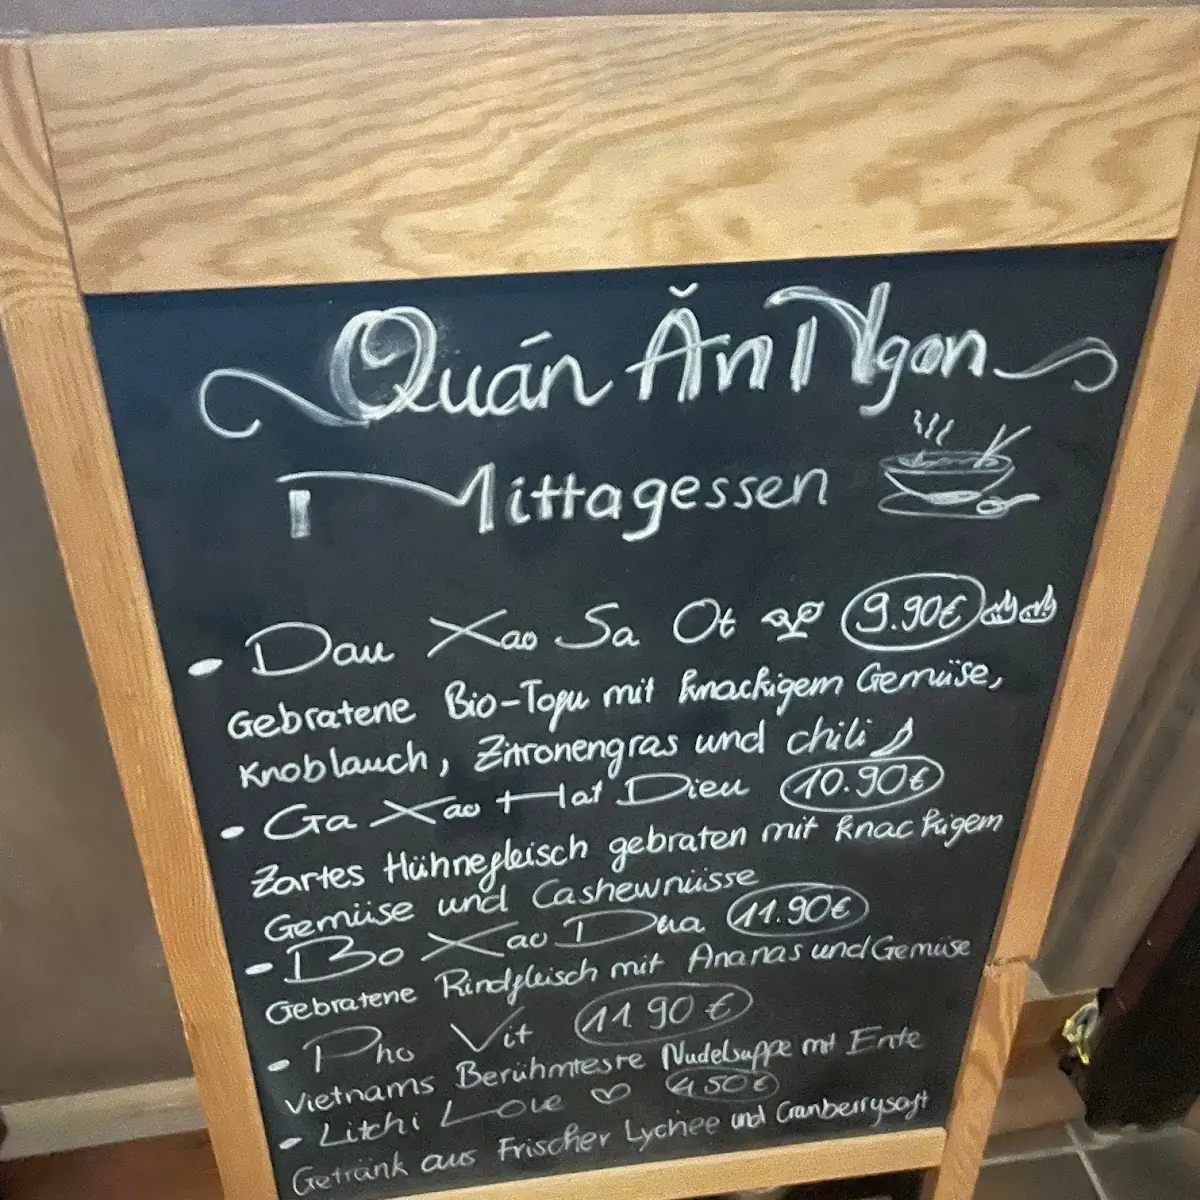 Quán Ăn Ngon
Mittagessen
- Dau Xao Sa Ot 9.90€
Gebratene Bio-Tofu mit knackigem Gemüse,
Knoblauch, Zitronengras und chili
- Ga Xao Hat Dieu 10.90€
Zartes Hühnefleisch gebraten mit knackigem
Gemüse und Cashewnüsse
- Bo Xao Dua 11.90€
Gebratene Rindfleisch mit Ananas und Gemüse
- Pho Vit 11.90€
Vietnams Berühmteste Nudelsuppe mit Ente
- Litchi Love ♡ 4.50€
Getränk aus Frischer Lychee und Cranberrysaft